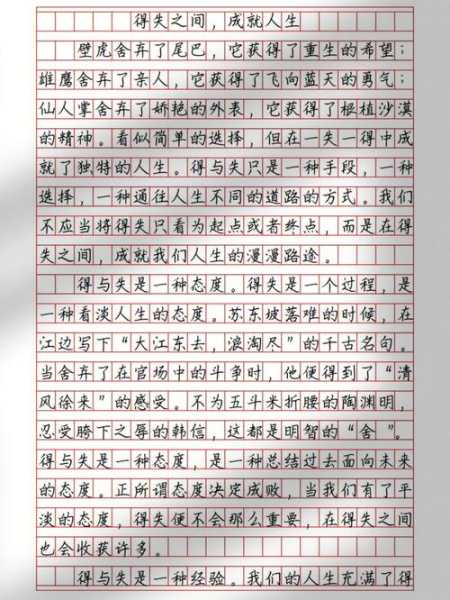 得失之间，成就人生
壁虎舍弃了尾巴，它获得了重生的希望；
雄鹰舍弃了亲人，它获得了飞向蓝天的勇气；
仙人掌舍弃了娇艳的外表，它获得了根植沙漠
的精神。看似简单的选择，但在一失一得中成
就了独特的人生。得与失只是一种手段，一种
选择，一种通往人生不同的道路的方式。我们
不应当将得失只看为起点或者终点，而是在得
失之间，成就我们人生的漫漫路途。
得与失是一种态度。得失是一个过程，是
一种看淡人生的态度。苏东坡落难的时候，在
江边写下“大江东去，浪淘尽”的千古名句。
当舍弃了在官场中的斗争时，他便得到了“清
风徐来”的感受。不为五斗米折腰的陶渊明，
忍受胯下之辱的韩信，这都是明智的“舍”。
得与失是一种态度，是一种总结过去面向未来
的态度。正所谓态度决定成败，当我们有了平
淡的态度，得失便不会那么重要，在得失之间
也会收获许多。
得与失是一种经验。我们的人生充满了得